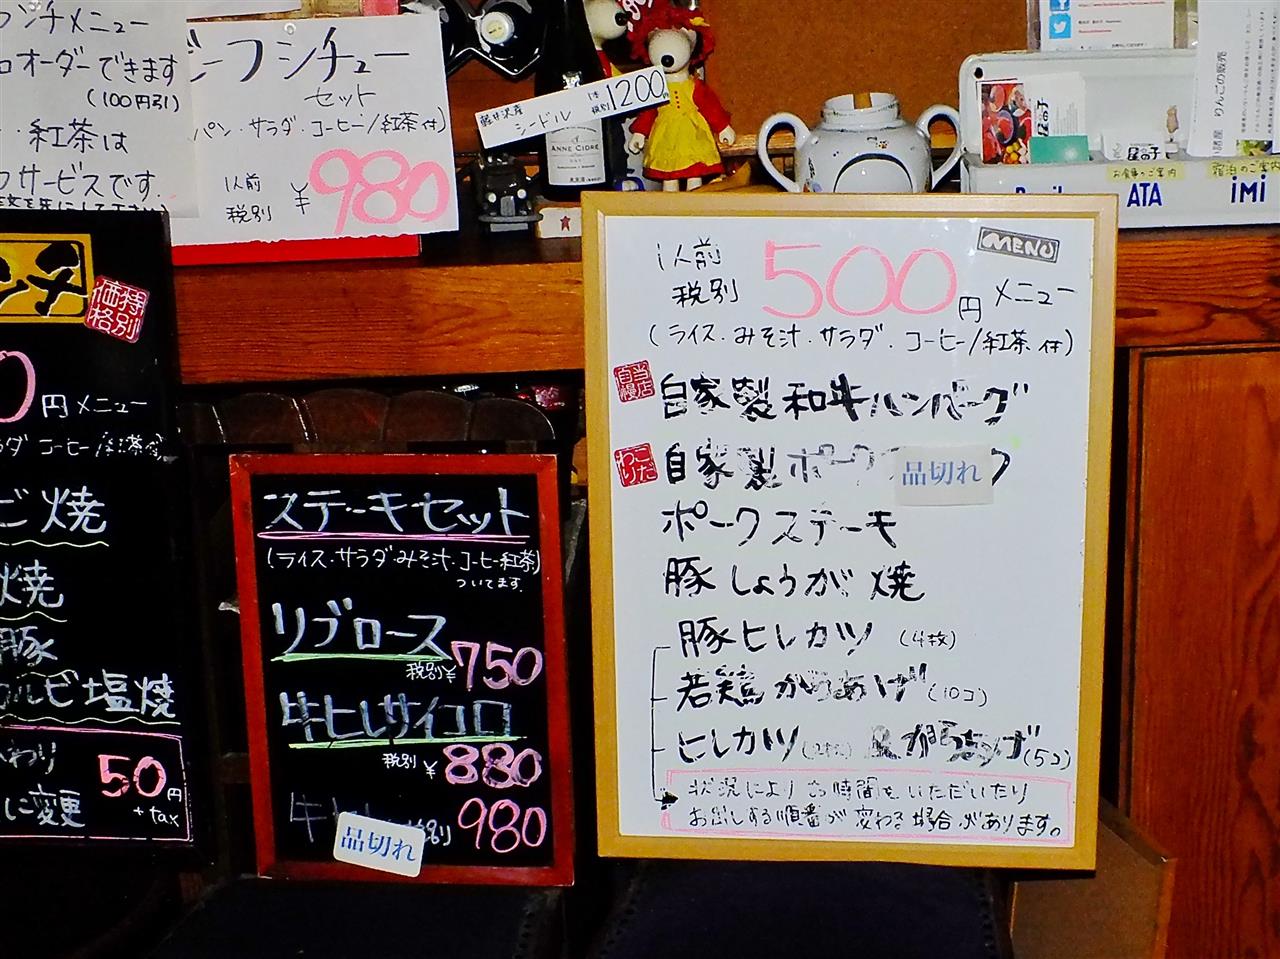 ンチメニュー
オーダーできます
(100円引)
紅茶は
サービスです
ビーフシチュー
セット
パン・サラダ・コーヒー/紅茶付)
1人前
税別 ¥980
軽井沢産
シードル
1本
税別 1200円
ANNE CIDRE
尾の子
お食事のご案内
宿泊のご案内
ATA
iMi
りんごの販売
特別
価格
0円メニュー
ラダ コーヒー/紅茶付
焼
焼
豚
ルビ塩焼
50円
+tax
に変更
ステーキセット
(ライス・サラダ・みそ汁・コーヒー紅茶)
ついてます
リブロース
税別¥750
牛ヒレサイコロ
税別¥880
品切れ
980
MENU
1人前
税別 500円メニュー
(ライス・みそ汁・サラダ・コーヒー/紅茶付)
当店自慢
自家製和牛ハンバーグ
こだわり
自家製ポーク
品切れ
ポークステーキ
豚しょうが焼
豚ヒレカツ (4枚)
若鶏からあげ(10コ)
ヒレカツ (2枚) & からあげ(5コ)
状況によりお時間をいただいたり
お出しする順番が変わる場合があります。